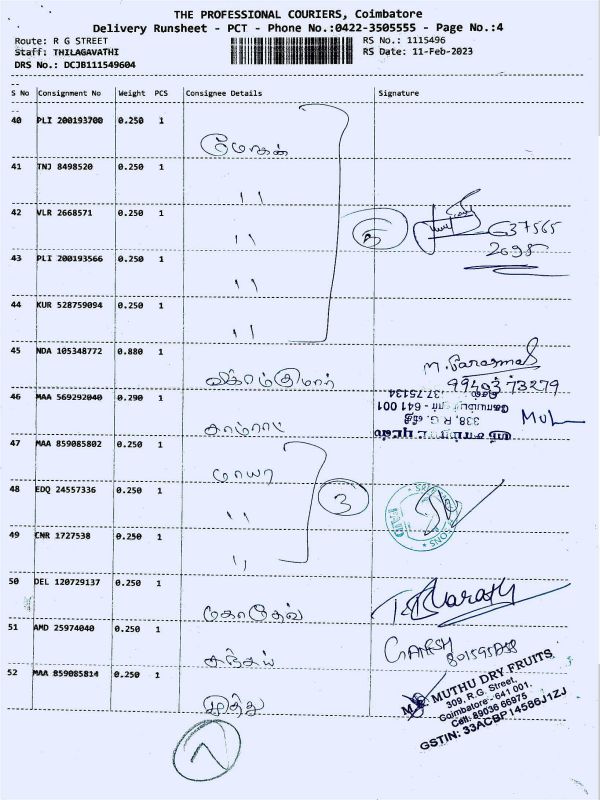 THE PROFESSIONAL COURIERS, Coimbatore
Delivery Runsheet - PCT - Phone No.:0422-3505555 - Page No.:4
Route: R G STREET RS No.: 1115496
Staff: THILAGAVATHI RS Date: 11-Feb-2023
DRS No.: DCJB111549604
S No Consignment No Weight PCS Consignee Details Signature
40 PLI 200193700 0.250 1
41 TNJ 8498520 0.250 1 "
42 VLR 2668571 0.250 1 "
43 PLI 200193566 0.250 1 "
44 KUR 528759094 0.250 1 "
45 NDA 105348772 0.880 1 விக்ரம்குமார்
99493 73279
46 MAA 569292040 0.290 1 சாம்ராட்
338, R.G. வீதி
கோயம்புத்தூர் - 641 001
47 MAA 859085802 0.250 1 மாயா
48 EDQ 24557336 0.250 1 " 3
PAID
49 CNR 1727538 0.250 1 "
50 DEL 120729137 0.250 1 மகாதேவ்
51 AMD 25974040 0.250 1 சஞ்சய் GANESH
52 MAA 859085814 0.250 1 முத்து
MUTHU DRY FRUITS
309, R.G. Street,
Coimbatore - 641 001.
Cell: 89036 66975
GSTIN: 33ACBP14586J1ZJ
7